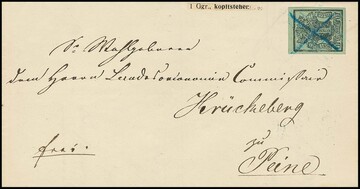 1 Ggr., kopfstehend
Sr Wohlgeboren
dem Herrn Landesoeconomie Commissair
Krückeberg
zu
Peine.
frei.